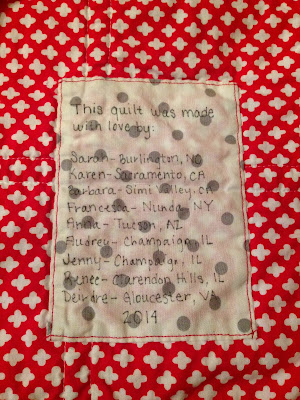 This quilt was made
with love by:
Sarah- Burlington, NC
Karen- Sacramento, CA
Barbara- Simi Valley, CA
Francesca- Nunda, NY
Anna- Tucson, AZ
Audrey- Champaign, IL
Jenny- Champaign, IL
Renee- Clarendon Hills, IL
Deirdre- Gloucester, VA
2014